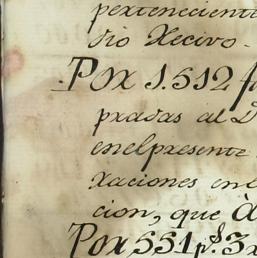 pertenecient
dio Recivo.
Por 1.512 p
pradas al D
en el presente
raciones en e
cion, que À
Por 551 p.s 3 r